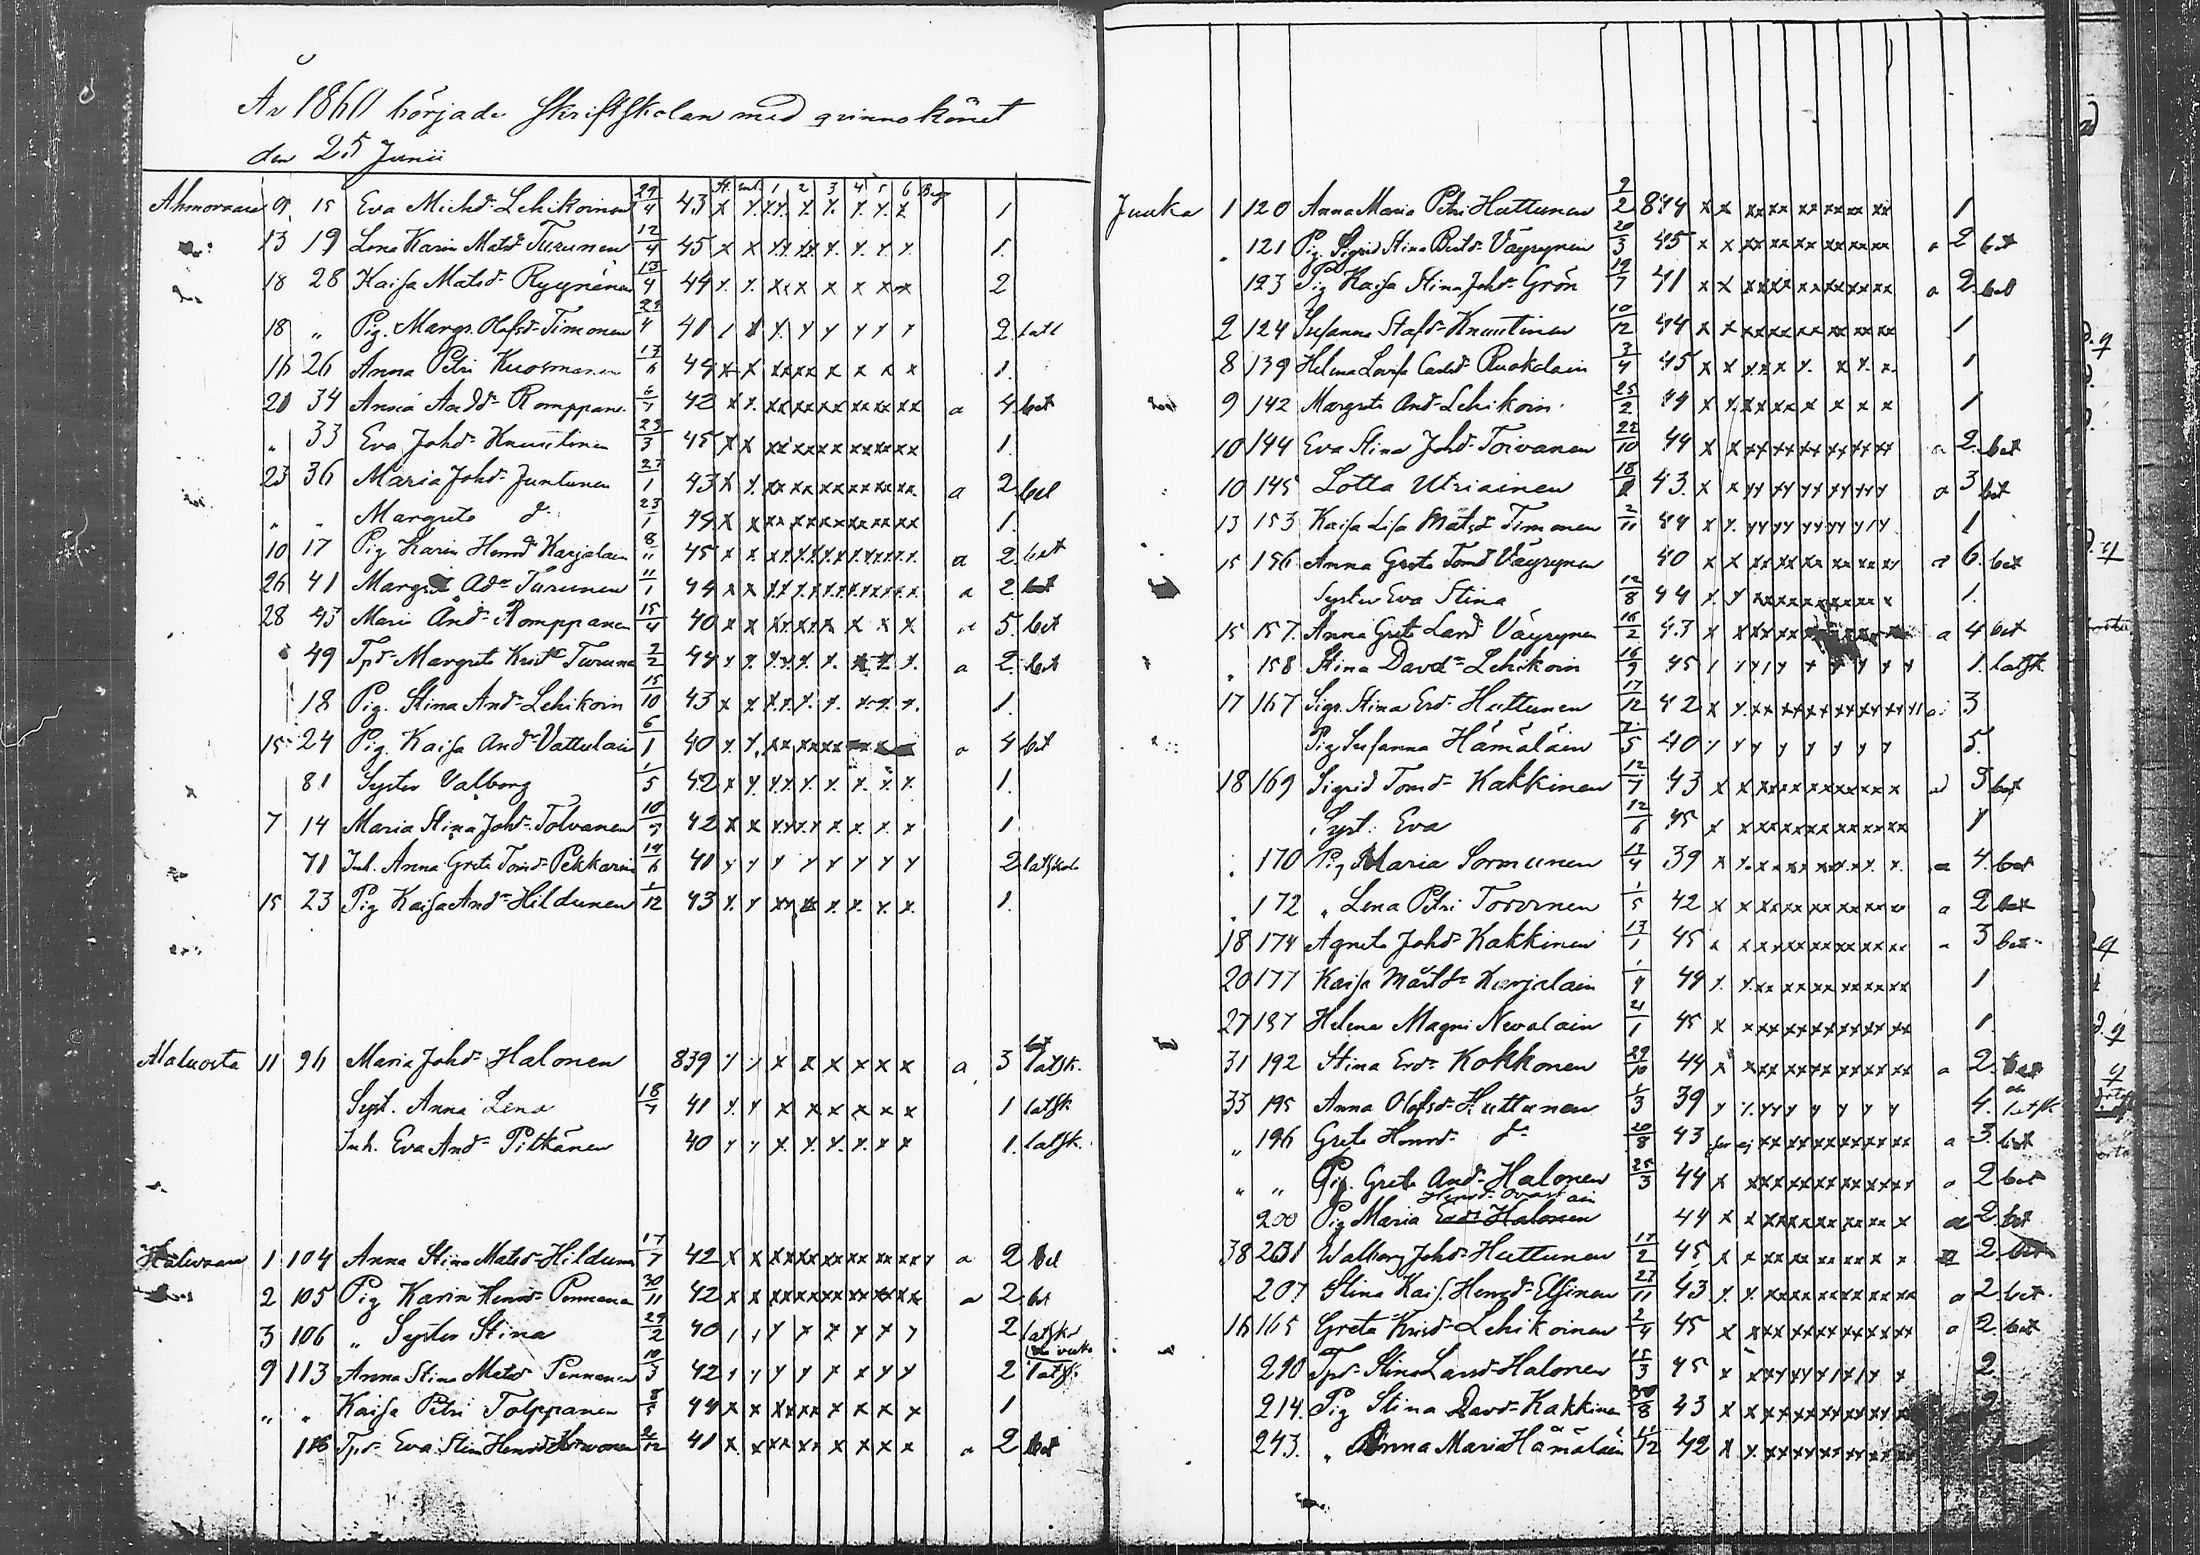 År 1860 började Skriftskolan med qvinnokönet
den 25 Junii
St. 1 2 3 4 5 6
Ahmovaara 9 15 Eva Michd. Lehikoinen 29/4 43 1
13 19 Lena Karin Matsd. Turunen 12/4 45 1.
18 28 Kaisa Matsd. Ryynänen 13/4 44 2
18 " Pig. Margr. Olofsd. Timonen 4 41 2
16 26 Anna Petri Kuosmanen 17/6 44 1.
20 34 Anna Andd. Romppan. 42 a 4 bet
" 33 Eva Johd. Knuutinen 23/3 45 1.
23 36 Maria Johd. Juntunen 27/1 43 a 2 bet
" " Margreta d. 23/1 44 1.
10 17 Pig Karin Hennd Karjalain 8/11 45 a 2 bet
26 41 And. Turunen 11/1 44 a 2 bet
28 43 Mari And. Romppanen 15/4 40 a 5. bet
49 Margreta Turunen 2/2 44 a 2. bet
18 Pig. Stina And. Lehikoin 15/10 43 1.
15 24 Pig. Kaisa And. Vattulain 6/1 40 a 4 bet
81 Syster Valborg 1/5 42 1.
7 14 Maria Stina Johd. Tolvanen 10/7 42 1
71 Inh. Anna Greta Tomd. Pekkarin 14/6 41 2
15 23 Pig Kaisa And. Hildunen 1/12 43 1.
Maluosta 11 96 Maria Johd. Halonen 839 a 3 bet latsk.
Syst. Anna Lena 18/7 41 1 latsk
Inh. Eva And. Pitkänen 40 1. latsk.
1 104 Anna Stina Matsd. Hildunen 17/7 42 a 2 bet
2 105 Pig Karin Hennd. Pennanen 30/11 42 a 2 bet
3 106 " Syster Stina 29/2 40 2
9 113 Anna Stina Matsd Pennanen 10/3 42 2 latsk
" " Kaisa Petri Tolppanen 8/5 44 1
116 Eva Stin Hennd 2/12 41 a 2 bet
Juuka 1 120 Anna Maria Petri Huttunen 9/2 844 1
" 121 Pig. Sigrid Stina Väyrynen 20/3 45 a 2 bet
123 Pig Kaisa Stina Johd. Grön 19/7 41 a 2 bet
2 124 Susanna Stafd. Knuutinen 10/12 44 1
8 139 Helena Lovisa Carlsd. Ruokolain 3/4 45 1
9 142 Margreta And. Lehikoin. 25/2 44 1
10 144 Eva Stina Johd. Toivanen 22/10 44 a 2. bet
10 145 Lotta Utriainen 18 43 a 3 bet
13 153 Kaisa Lisa Matsd Timonen 2/11 44 1
15 156 Anna Greta Tomd Väyrynen 40 a 6. bet
Syster Eva Stina 12/8 44 1.
15 157. Anna Greta Lassd Väyrynen 16/2 43 a 4 bet
" 158 Stina Davd. Lehikoin 16/9 45 1. latsk
17 167 Sigr. Stina Erd. Huttunen 17/12 42 a 3
Pig Susanna Hämäläin 7/5 40 5.
18 169 Sigrid Tomd. Kakkinen 12/7 43 a 3 bet
Syst. Eva 12/6 45 1
" 170 Pig Maria Sormunen 17/4 39 a 4. bet
" 172 " Lena Petri Torvinen 1/5 42 a 2 bet
18 174 Agneta Johd. Kakkinen 13/1 45 a 3 bet
20 177 Kaisa Mårtd. Karjalain 1/4 44 1
27 187 Helena Magni Nevalain 21/1 45 1.
31 192 Stina Erd. Kokkonen 29/10 44 a 2. bet
33 195 Anna Olofsd. Huttunen 1/3 39 4. latsk
" 196 Greta Hennd. d. 20/8 43 a 3. bet
" " Pig. Greta And. Halonen 25/3 44 a 2 bet
200 Pig Maria Halonen 44 a 2 bet
38 201 Walborg Johd. Huttunen 17/2 45 2. bet
207 Stina Kais. Hennd. Elsinen 27/11 43 a 2 bet.
16 165 Greta Krisd. Lehikoinen 2/4 45 a 2. bet
210 Stina Lassd. Halonen 15/3 45 2
214. Pig Stina Davd. Kakkinen 43 2
243. " Anna Maria Hämäläin 11/12 42